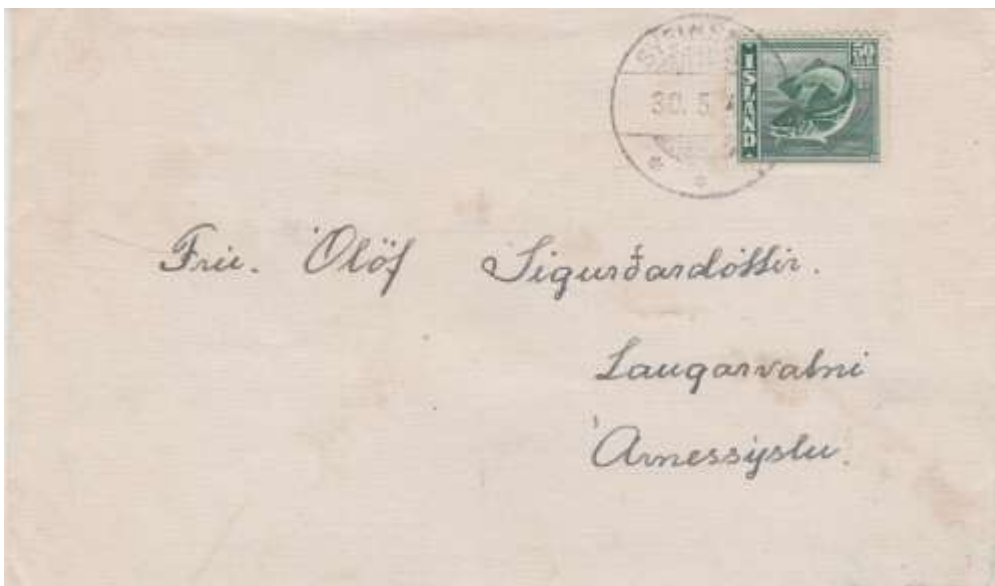 50
ÍSLAND
30. 5
Frú. Ólöf Sigurðardóttir.
Laugarvatni
Árnessýslu.